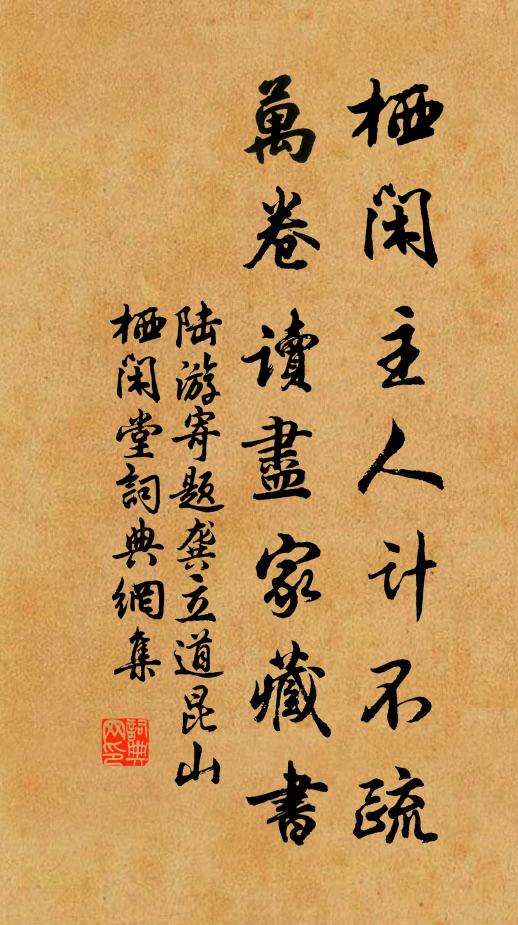 栖閑主人计不疏
萬卷讀盡家藏書
陆游寄题龚立道昆山
栖閑堂詞典網集
詞典
网印